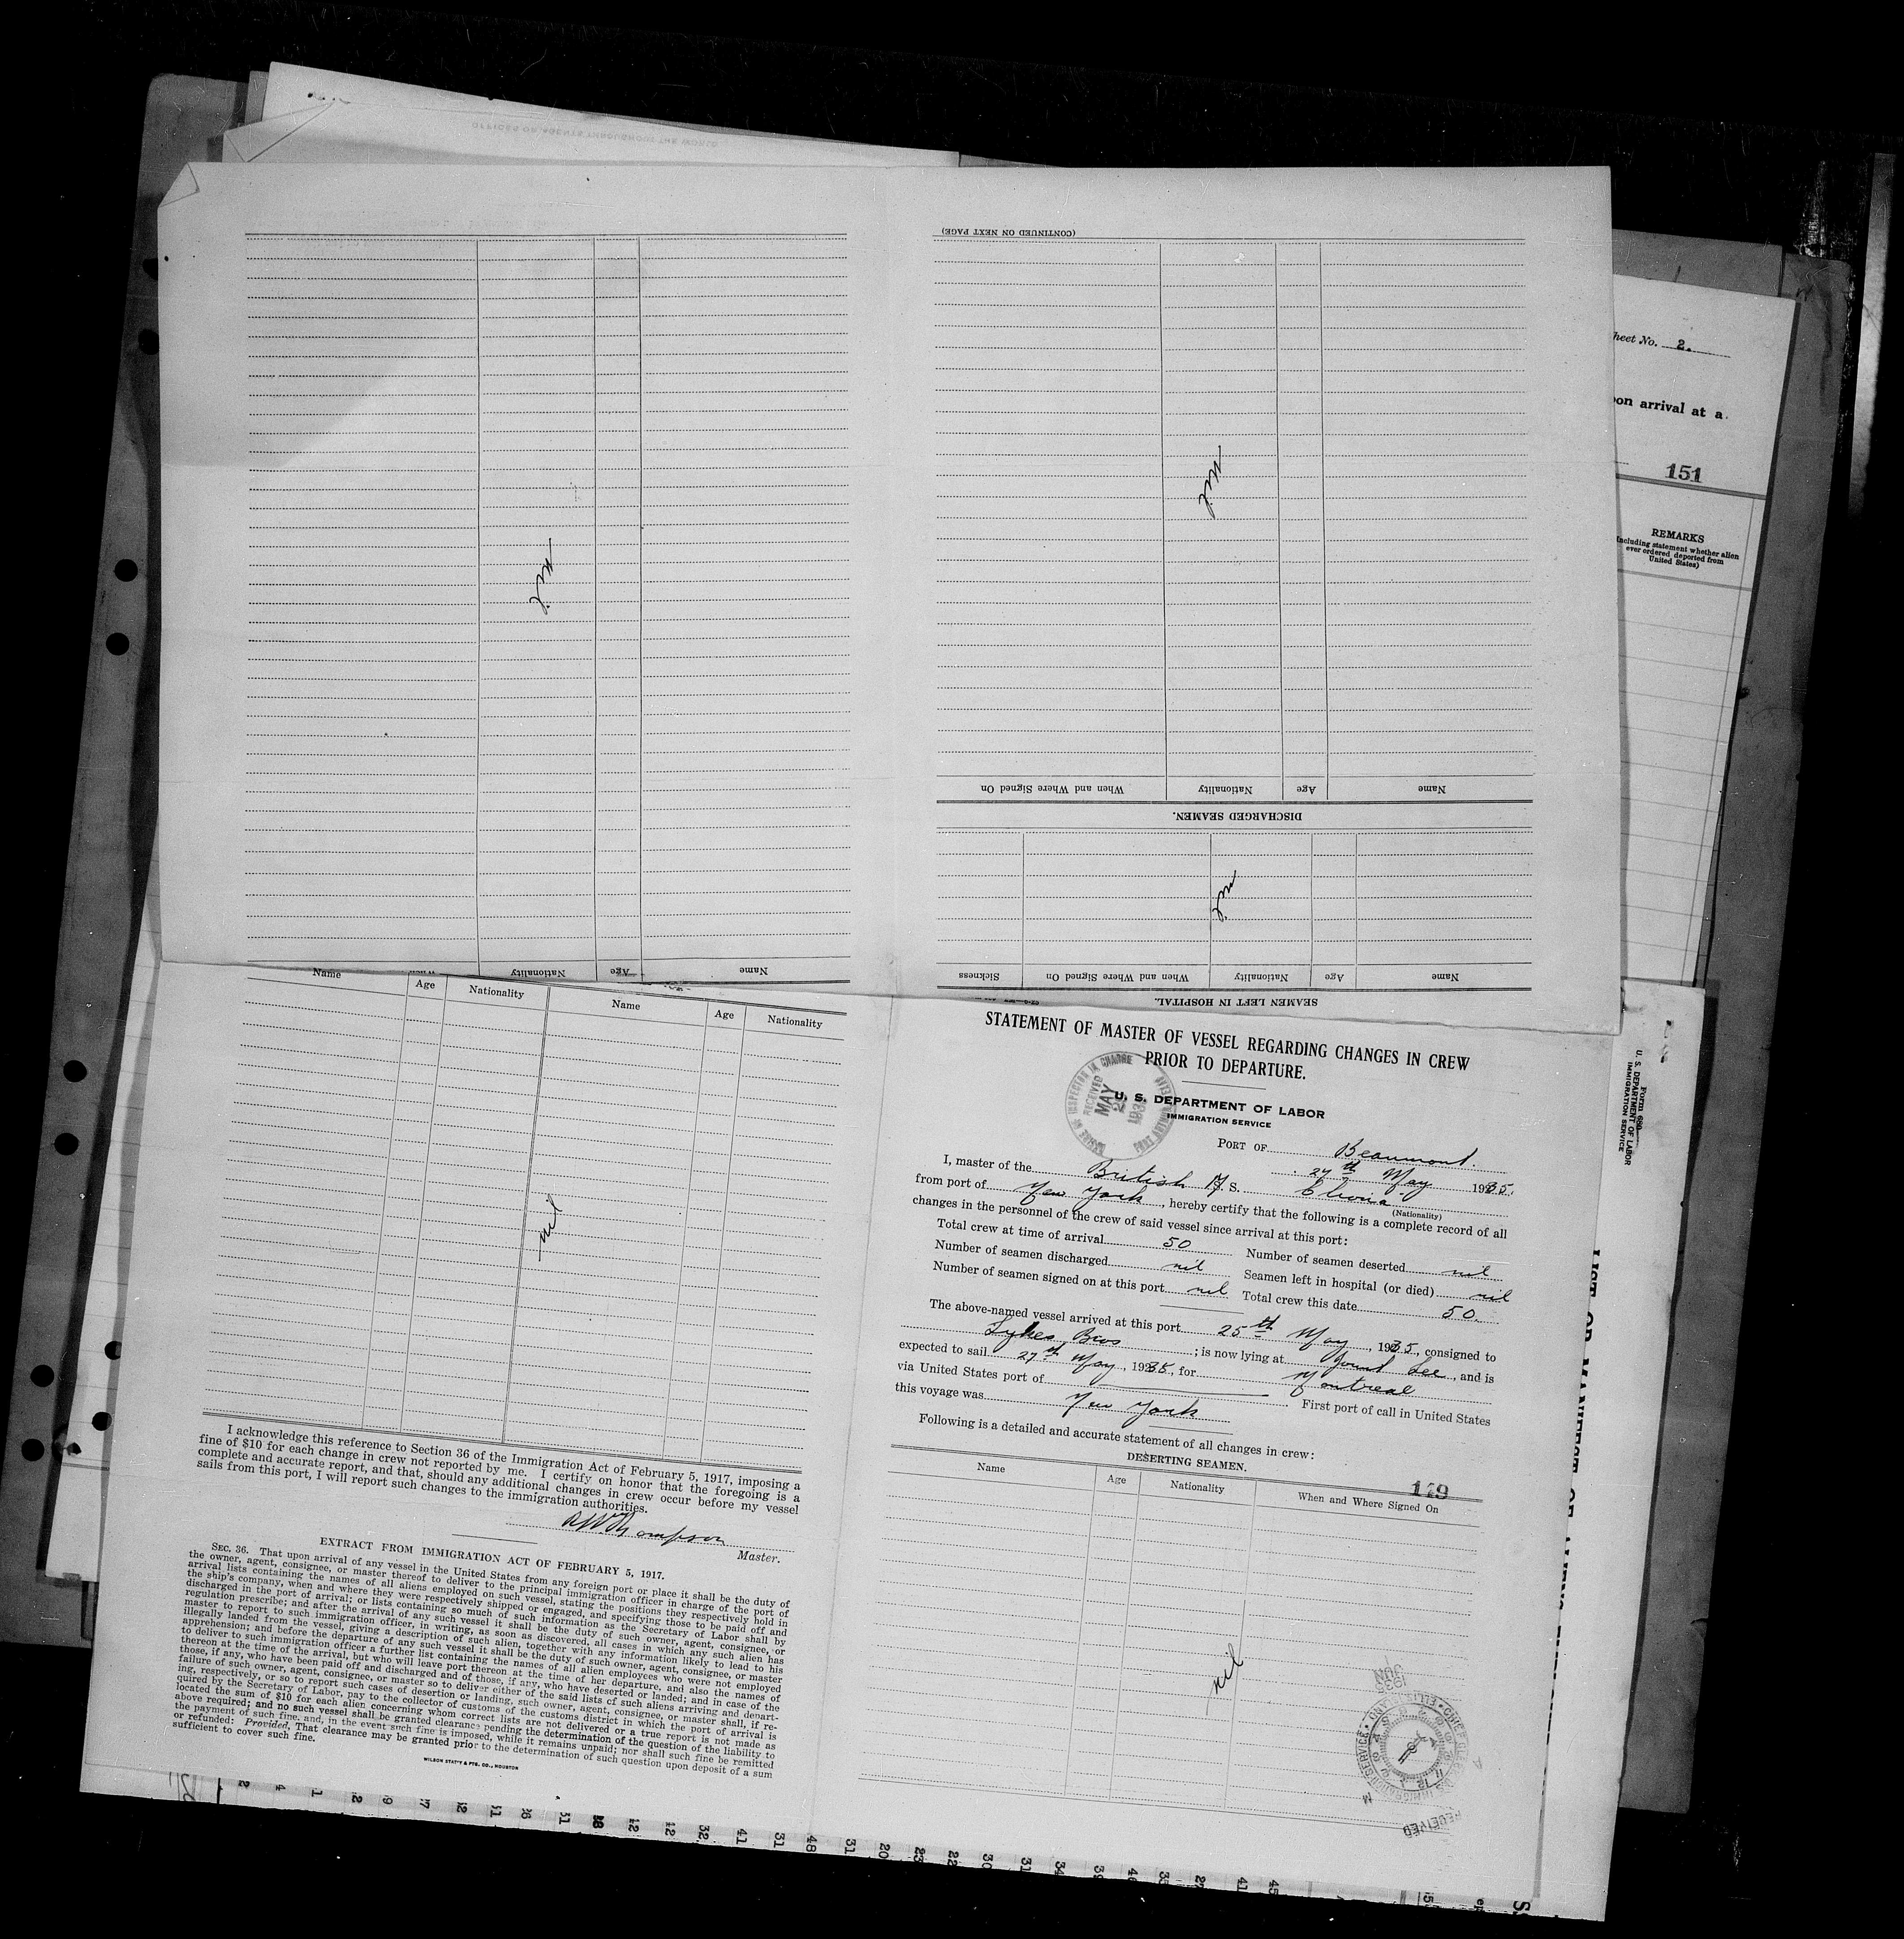 OFFICES OR AGENTS THROUGHOUT THE WORLD
(CONTINUED ON NEXT PAGE)
heet No. 2.
on arrival at a
151
REMARKS
including statement whether alien
ever ordered deported from
United States)
nil
nil
Name Age Nationality When and Where Signed On
DISCHARGED SEAMEN.
nil
Name Age Nationality When and Where Signed On Sickness
SEAMEN LEFT IN HOSPITAL.
Name Age Nationality
Name Age Nationality Name Age Nationality
nil
I acknowledge this reference to Section 36 of the Immigration Act of February 5, 1917, imposing a
fine of $10 for each change in crew not reported by me. I certify on honor that the foregoing is a
complete and accurate report, and that, should any additional changes in crew occur before my vessel
sails from this port, I will report such changes to the immigration authorities.
Thompson
Master.
EXTRACT FROM IMMIGRATION ACT OF FEBRUARY 5, 1917.
SEC. 36. That upon arrival of any vessel in the United States from any foreign port or place it shall be the duty of
the owner, agent, consignee, or master thereof to deliver to the principal immigration officer in charge of the port of
arrival lists containing the names of all aliens employed on such vessel, stating the positions they respectively hold in
the ship's company, when and where they were respectively shipped or engaged, and specifying those to be paid off and
discharged in the port of arrival; or lists containing so much of such information as the Secretary of Labor shall by
regulation prescribe; and after the arrival of any such vessel it shall be the duty of such owner, agent, consignee, or
master to report to such immigration officer, in writing, as soon as discovered, all cases in which any such alien has
illegally landed from the vessel, giving a description of such alien, together with any information likely to lead to his
apprehension; and before the departure of any such vessel it shall be the duty of such owner, agent, consignee, or master
to deliver to such immigration officer a further list containing the names of all alien employees who were not employed
thereon at the time of the arrival, but who will leave port thereon at the time of her departure, and also the names of
those, if any, who have been paid off and discharged and of those, if any, who have deserted or landed; and in case of the
failure of such owner, agent, consignee, or master so to deliver either of the said lists of such aliens arriving and depart-
ing, respectively, or so to report such cases of desertion or landing, such owner, agent, consignee, or master shall, if re-
quired by the Secretary of Labor, pay to the collector of customs of the customs district in which the port of arrival is
located the sum of $10 for each alien concerning whom correct lists are not delivered or a true report is not made as
above required; and no such vessel shall be granted clearance pending the determination of the question of the liability to
the payment of such fine, and, in the event such fine is imposed, while it remains unpaid; nor shall such fine be remitted
or refunded: Provided, That clearance may be granted prior to the determination of such question upon deposit of a sum
sufficient to cover such fine.
WILSON STAT'Y & PTG. CO., HOUSTON
STATEMENT OF MASTER OF VESSEL REGARDING CHANGES IN CREW
PRIOR TO DEPARTURE.
INSPECTOR IN CHARGE
RECEIVED
MAY
U. S. DEPARTMENT OF LABOR
IMMIGRATION SERVICE
PORT OF Beaumont.
27th May 1935.
I, master of the British M. S. Elmira
(Nationality)
from port of New York, hereby certify that the following is a complete record of all
changes in the personnel of the crew of said vessel since arrival at this port:
Total crew at time of arrival 50 Number of seamen deserted nil
Number of seamen discharged nil Seamen left in hospital (or died) nil
Number of seamen signed on at this port nil Total crew this date 50.
The above-named vessel arrived at this port 25th May, 1935, consigned to
Lykes Bros; is now lying at, and is
expected to sail 27th May, 1935, for Montreal
via United States port of First port of call in United States
this voyage was New York
Following is a detailed and accurate statement of all changes in crew:
DESERTING SEAMEN.
149
Name Age Nationality When and Where Signed On
nil
1935
JUN
RECEIVED
Form 680
U. S. DEPARTMENT OF LABOR
IMMIGRATION SERVICE